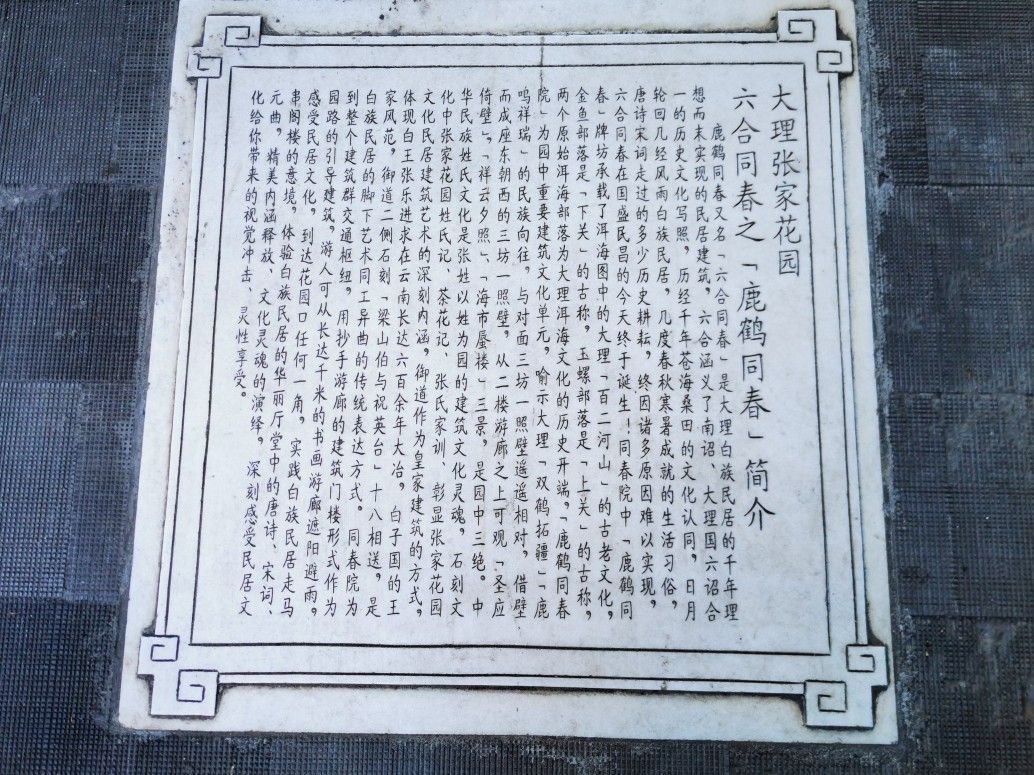 大理张家花园
六合同春之「鹿鹤同春」简介
鹿鹤同春又名「六合同春」是大理白族民居的千年理
想而未实现的民居建筑，六合涵义了南诏、大理国六诏合
一的历史文化写照，历经千年苍海桑田的文化认同，日月
轮回几经风雨白族民居，几度春秋寒暑成就的生活习俗，
唐诗宋词走过的多少历史耕耘，终因诸多原因难以实现，
六合同春在国盛民昌的今天终于诞生！同春院中「鹿鹤同
春」牌坊承载了洱海图中的大理「百二河山」的古老文化，
金鱼部落是「下关」的古称，玉螺部落是「上关」的古称，
两个原始洱海部落为大理洱海文化的历史开端。「鹿鹤同春
院」为园中重要建筑文化单元，喻示大理「双鹤拓疆」「鹿
鸣祥瑞」的民族向往，与对面三坊一照壁遥遥相对，借壁
而成座东朝西的三坊一照壁，从二楼游廊之上可观「圣应
倚壁」、「祥云夕照」、「海市蜃楼」三景，是园中三绝。中
华民族姓氏文化是张姓以姓为园的建筑文化灵魂，石刻文
化中张家花园姓氏记、茶花记、张氏家训、彰显张家花园
文化民居建筑艺术的深刻内涵，御道作为皇家建筑的方式，
体现白王张乐进求在云南长达六百余年大冶，白子国的王
家风范，御道二侧石刻「梁山伯与祝英台」十八相送，是
白族民居的脚下艺术同工异曲的传统表达方式。同春院为
到整个建筑群交通枢纽，用抄手游廊的建筑门楼形式作为
园路的引导建筑，游人可从长达千米的书画游廊遮阳避雨，
感受民居文化，到达花园口任何一角，实践白族民居走马
串阁楼的意境，体验白族民居的华丽厅堂中的唐诗、宋词、
元曲，精美内涵释放、文化灵魂的演绎，深刻感受民居文
化给你带来的视觉冲击、灵性享受。